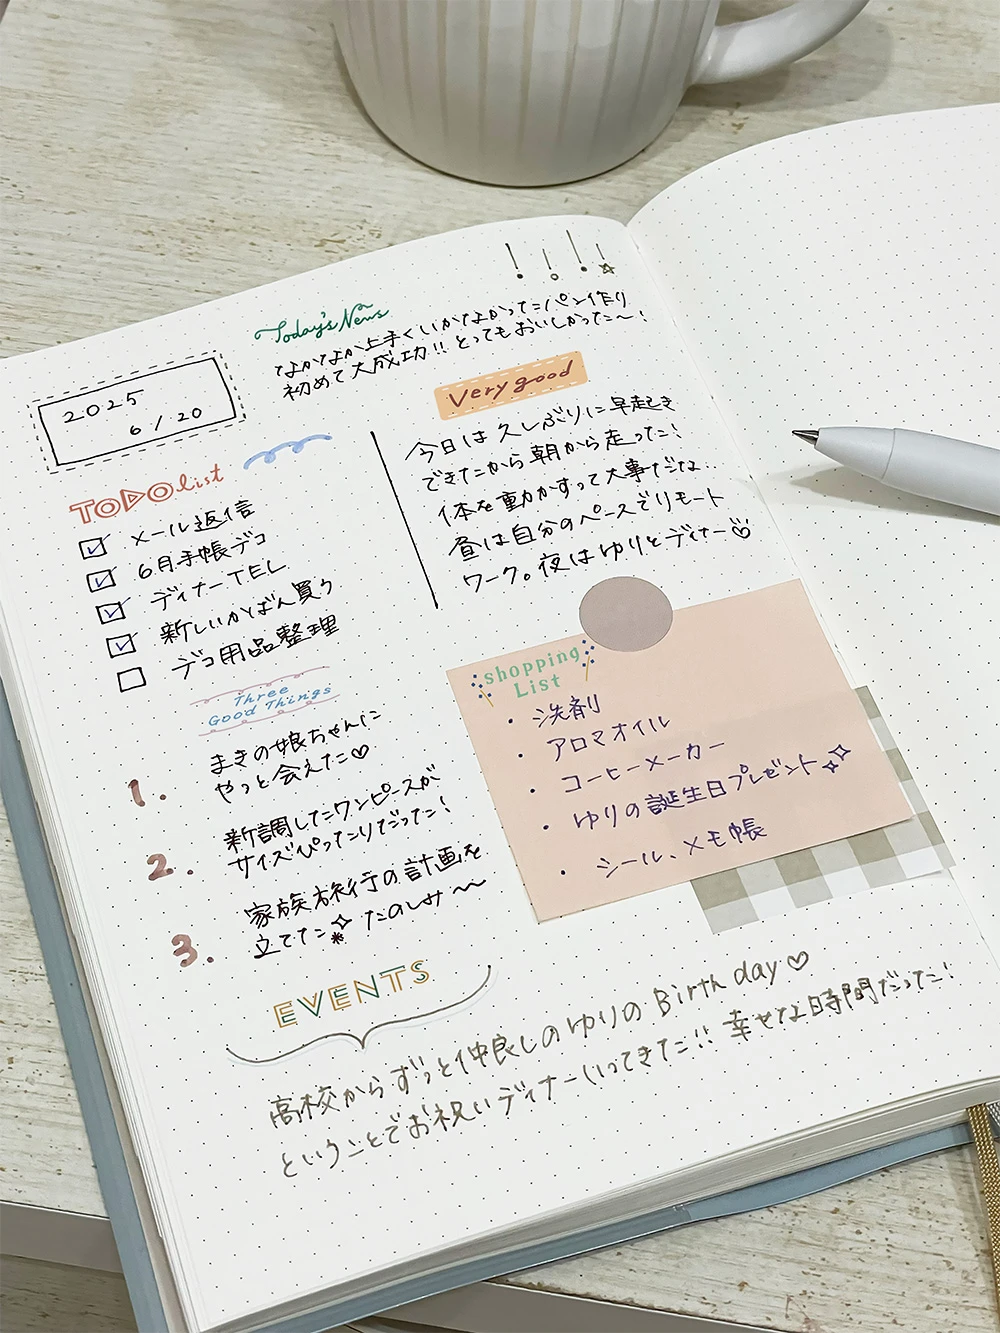 Today's News
なかなか上手くいかなかったパン作り
初めて大成功!! とってもおいしかった〜!
2025
6/20
Very good
今日は久しぶりに早起き
できたから朝から走った!
体を動かすって大事だな..
昼は自分のペースでリモート
ワーク。夜はゆりとディナー♡
TODO list
メール返信
6月手帳デコ
ディナーTEL
新しいかばん買う
デコ用品整理
Three
Good Things
1. まきの娘ちゃんに
やっと会えた♡
2. 新調したワンピースが
サイズぴったりだった!
3. 家族旅行の計画を
立てた たのしみ〜〜
shopping
List
・洗剤
・アロマオイル
・コーヒーメーカー
・ゆりの誕生日プレゼント
・シール、メモ帳
EVENTS
高校からずっと仲良しのゆりの Birth day♡
ということでお祝いディナーいってきた!! 幸せな時間だった!